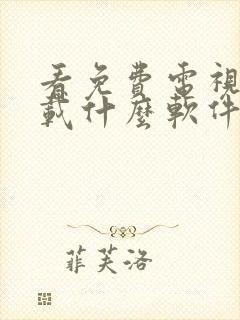 看免費電視
載什麼軟件
菲芙洛